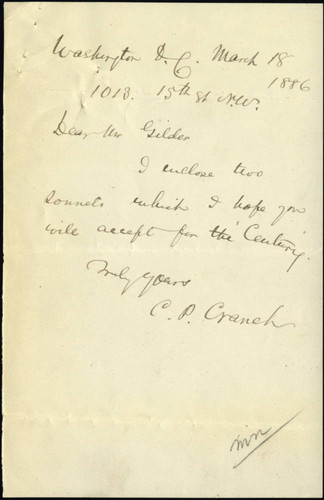 Washington D.C. March 18
1886
1013. 15th St N.W.
Dear Mr Gilder
I enclose two
sonnets which I hope you
will accept for the "Century".
Truly yours
C. P. Cranch